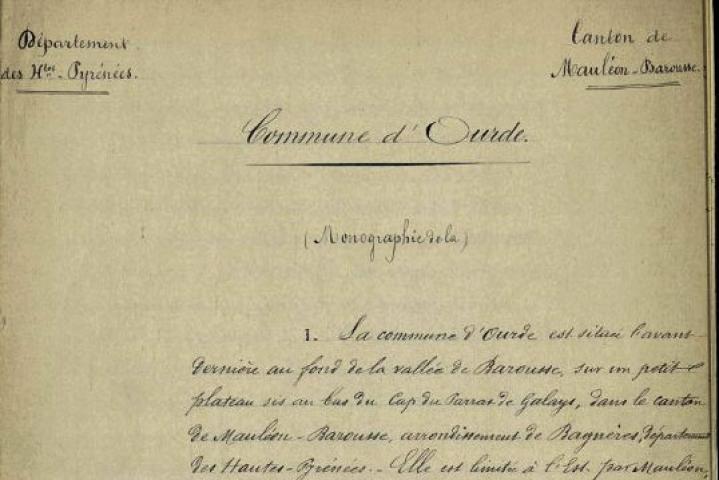 Département
des Htes-Pyrénées.
Canton de
Mauléon-Barousse.
Commune d'Ourde.
(Monographie de la)
1. La commune d'Ourde est située l'avant
dernière au fond de la vallée de Barousse, sur un petit
plateau sis au bas du Cap du Parras de Galays, dans le canton
de Mauléon-Barousse, arrondissement de Bagnères, département
des Hautes-Pyrénées. - Elle est limitée à l'Est par Mauléon,